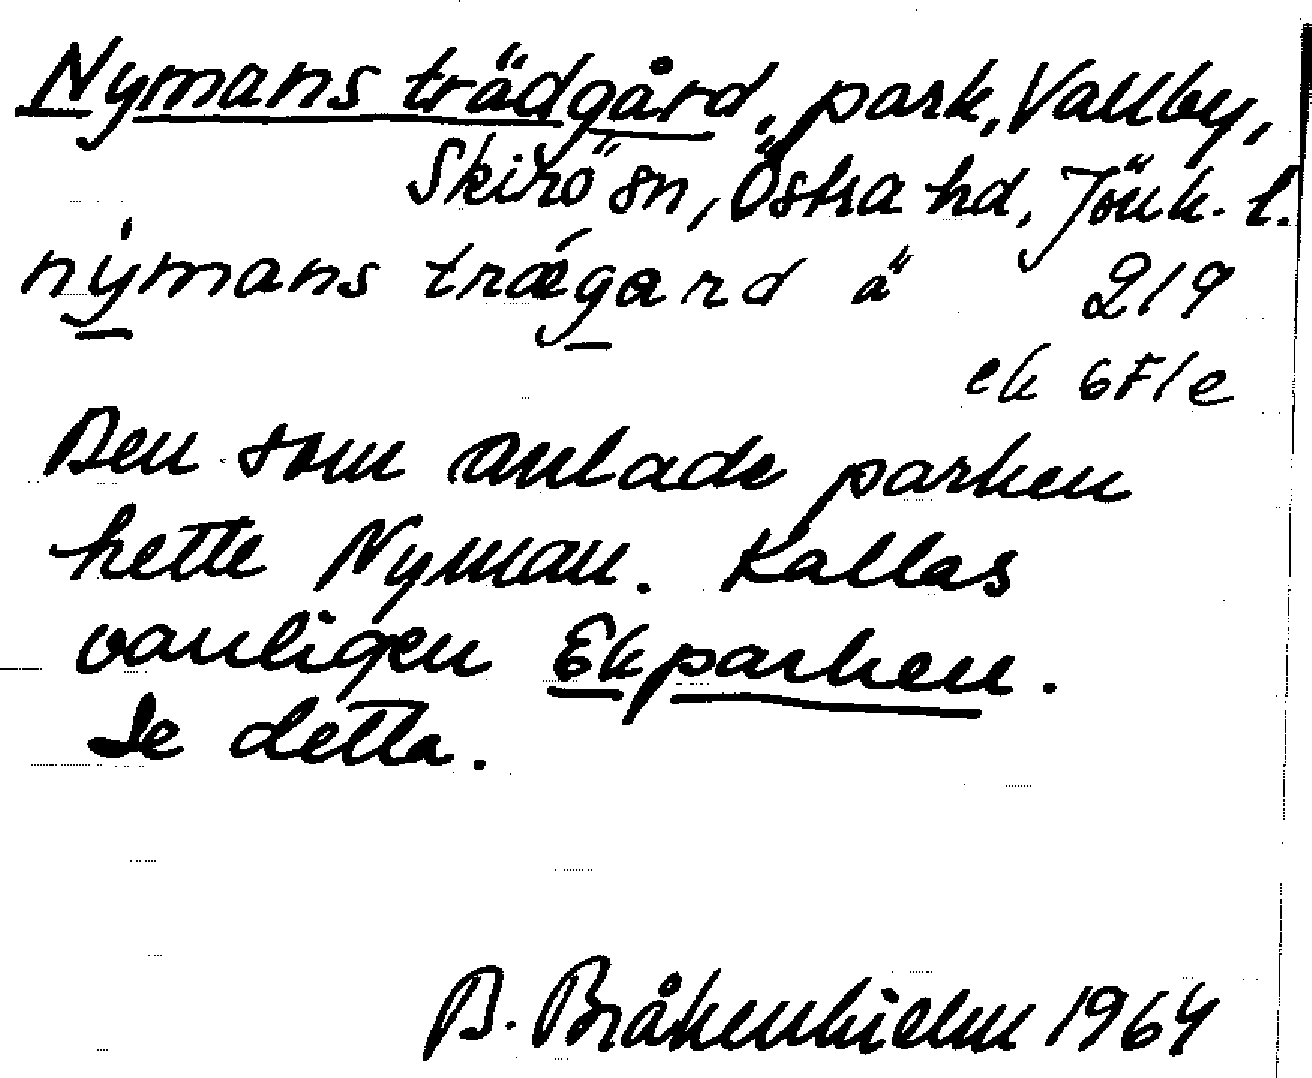 Nymans trädgård, park, Vallby,
Skirö sn, Östra hd, Jönk. l.
nymans trægard ä 219
ek 6F/e
Den som anlade parken
hette Nyman. Kallas
vanligen Ekparken.
Se detta.
B. Bråkenhielm 1964